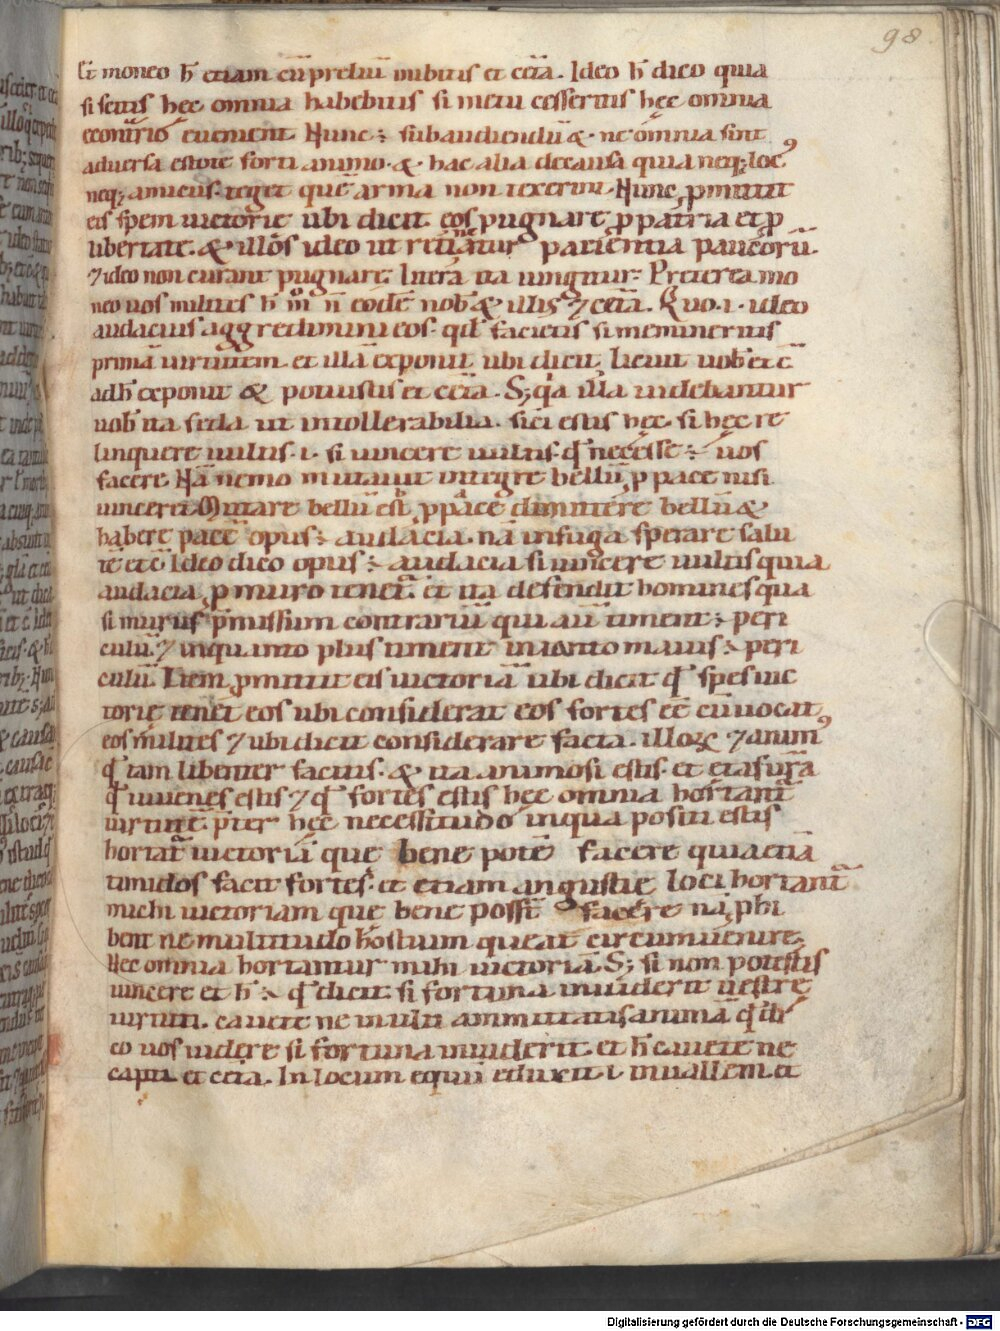 98
sꝉ moneo h̄ etiam cū preliū inibitis et cet̄a. Ideo h̄ dico quia
si scitis hęc omnia habebitis si metu cesseritis hęc omnia
econtrario euenient Nunc ÷ subaudiendū & ne omnia sint
aduersa estote forti animo. & hac alia decausa quia neq; loc᾽
neq; amicus teget quę arma non texerint. Nunc ꝓmittit
eis spem uictorię ubi dicit eos pugnare ꝓ patria et ꝓ
libertate. & illos ideo ut
⁊ ideo non curant pugnare. Littera ita iungitur Preterea mo
neo uos milites h̄ m̄ n̄ eadē nob̄ & illis ⁊ cet̄a. Quo .i. ideo
audacius aggredimini eos. qd̄ facietis si memineritis
primā uirtutem et illā exponit ubi dicit licuit uob̄ et c̄
adh̄ exponit & potuistis et cet̄a. S; qa illa uidebantur
uob̄ ita intollerabilia. hęc. si hęc re
linquere uultis .i. si uincere uultis. qd̄ necesse ÷ uos
facere Nā nemo mutauit integre bellū ꝓ pace nisi
Mutare bellū est ꝓ pace dimittere bellū &
habere pacē opus ÷ audacia. nā infuga sperare salu
tē et c̄ Ideo dico opus ÷ audacia si uincere uultis quia
audacia ꝓ muro tenet᷑. et ita defendit homines qua
si murus ꝓmissum contrariū qui aut̄ timent ÷ peri
culū. ⁊ inquanto plus timent intanto maius ÷ peri
culū. Item ꝓmittit eis uictoriā ubi dicit qd̄ spes uic
torię tenet eos ubi considerat eos fortes ēē cū uocat
eos milites ⁊ ubi dicit considerare facta. illoꝝ ⁊ anim᾽
qd̄ tam libenter facitis. & ita animosi estis. et etas ura
qd̄ iuuenes estis ⁊ qd̄ fortes estis hęc omnia hortant᷑
uirtutē. pret̄er hęc necessitudo inqua positi estis
hortat᷑ uictoriā quę bene potē facere quia etiā
timidos facit fortes. et etiam angustię loci hortant᷑
michi uictoriam quę bene poss̄t facere nā ꝓhi
bent ne multitudo hostium queat circumuenire
Hec omnia hortantur mihi uictoriā. S; si non potestis
uincere et h̄ ÷ qd̄ dicit. si fortuna inuiderit uestrę
uirtuti. cauete ne inulti ammittatis animā
co uos uidere si fortuna inuiderit. et h̄ cauete ne
capti et cet̄a. In locum equū eduxit .i. inuallem et
Digitalisierung gefördert durch die Deutsche Forschungsgemeinschaft - DFG